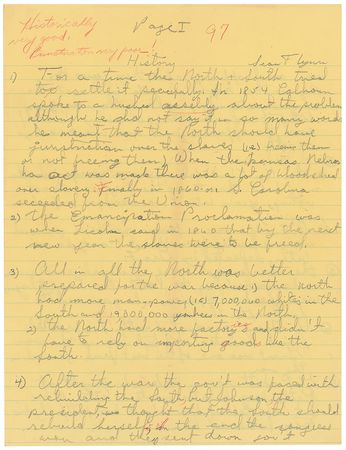 Historically
very good.
Punctuation very poor!
Page I
97
History
Sean Flynn
1) For a time the North + South tried
to settle it peacably. In 1854 Calhoun
spoke to a hushed assembly about the problem
although he did not say it in so many words
he meant that the North should have
jurisdiction over the slaves (ie) freeing them
or not freeing them) When the Kansas Nebras
ka act was made there was a lot of bloodshed
over slavery. Finally in 1860 S. Carolina
seceeded from the Union.
2) The Emancipation Proclamation was
when Lincoln said in 1860 that by the next
new year the slaves were to be freed.
3) All in all the North was better
prepared for the war because 1) the North
had more man-power (ie) 7,000,000 whites in the
South and 19,000,000 yankees in the North.
2) the North had more factories and didn't
have to rely on importing goods like the
South.
4) After the war the gov't was faced with
rebuilding the South but Johnson the
president, thought that the South should
rebuild herself in the end the
won and they sent down gov't